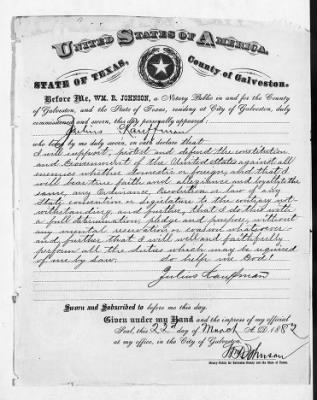 UNITED STATES OF AMERICA.
STATE OF TEXAS,
County of Galveston.
Before Me, WM. R. JOHNSON, a Notary Public in and for the County
of Galveston, and the State of Texas, residing at City of Galveston, duly
commissioned and sworn, this day personally appeared
Julius Kauffman
who being by me duly sworn, on oath declare that
I will support, protect and defend the constitution
and Government of the United States against all
enemies whether domestic or foreign, and that I
will bear true faith and allegiance and loyalty to the
same, any Ordinance, resolution or law of any
State convention or legislature to the contrary not-
withstanding, and further, that I do this with
a full determination, pledge and purpose, without
any mental reservation or evasion whatsoever
and further that I will well and faithfully
perform all the duties which may be required
of me by law. So help me God!
Julius Kauffman
Sworn and Subscribed to before me this day.
Given under my Hand and the impress of my official
Seal, this 22d day of March A.D. 1882
at my office, in the City of Galveston.
Wm R Johnson
Notary Public for Galveston County and the State of Texas.